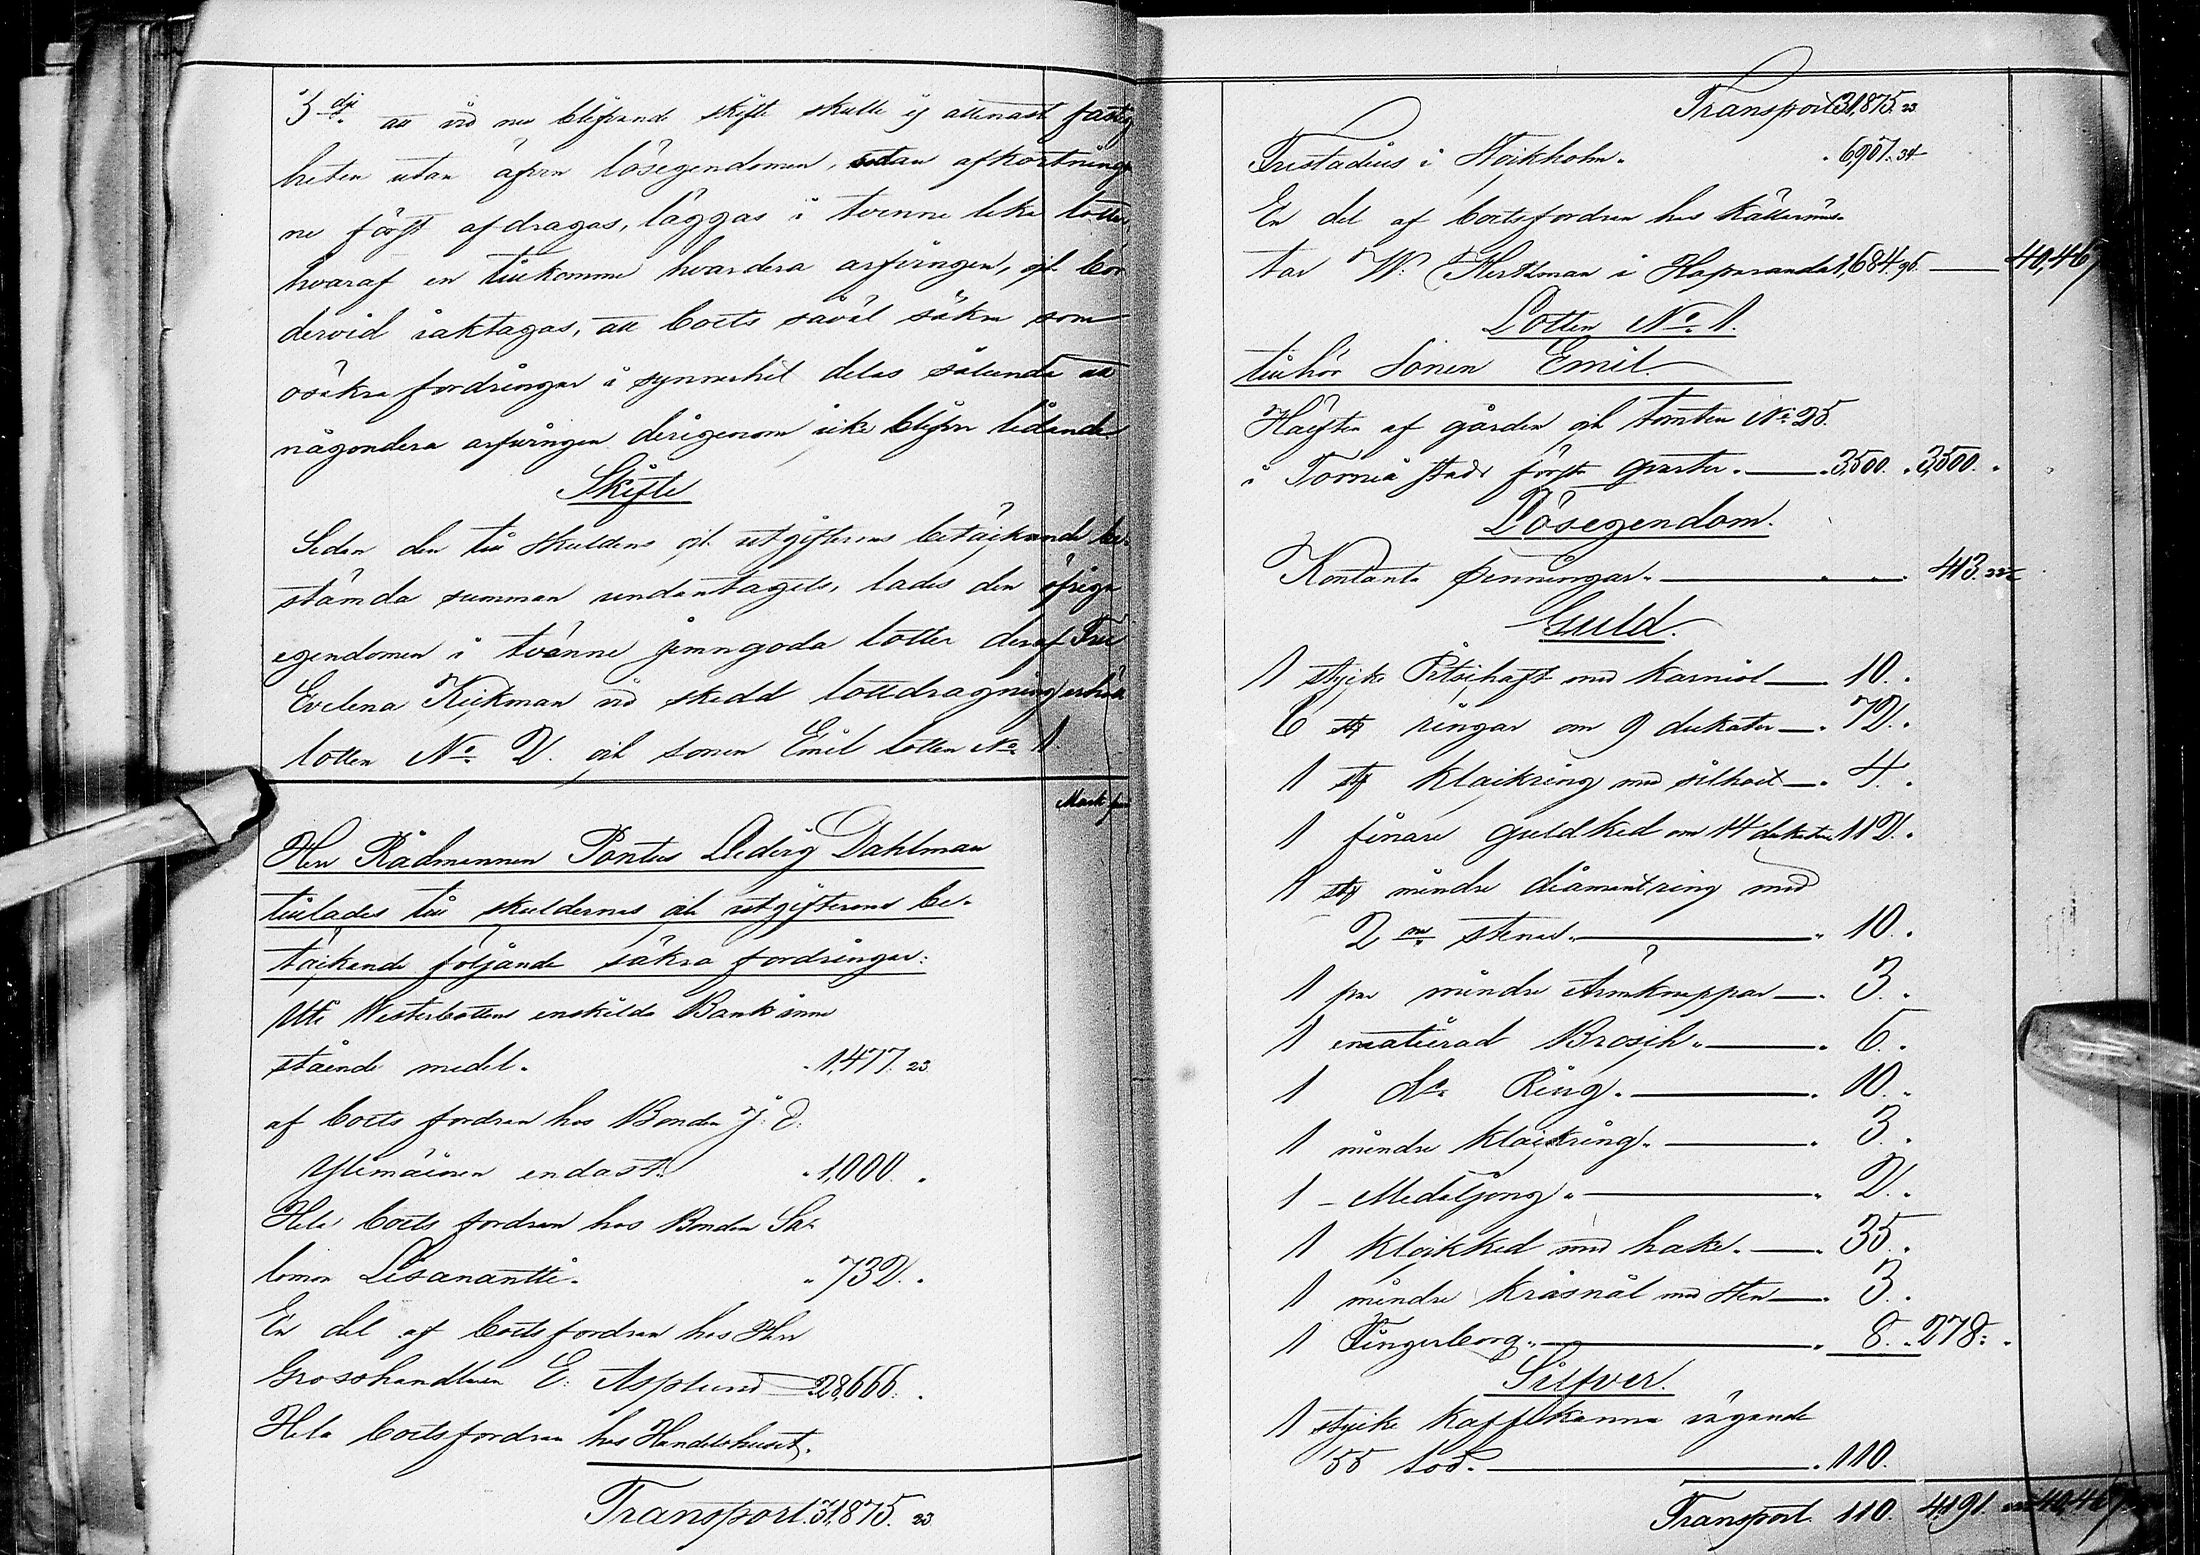 3dje att vid nu blifvande skifte skulle ej allenast fastig
heten utan äfven lösegendomen, sedan afkortninga
ne först afdragas, läggas i tvenne lika lotter,
hvaraf en tillkomme hvardera arfvingen, och bör
dervid iaktagas, att boets såväl säkra som
osäkra fordringar i synnerhet delas sålunda att
någondera arfvingen derigenom icke blifver lidande
Skifte
Sedan den till skuldens och utgifternes betäckande be-
stämda summan undantagits, lades den öfriga
egendomen i tvänne jemngoda lotter deraf Fru
Evelena Keckman vid skedd lottdragning erhöll
lotten No 2. och sonen Emil lotten No 1.
Mark pi
Herr Rådmannen Pontus Dahlman
tillades till skuldernes och utgifternes be-
täckande följande säkra fordringar:
Uti Westerbottens enskilda Bank inne
stående medel. 1,477. 23.
af boets fordran hos Bonden J. E.
Ylimäinen endast. 1,000.
Hela boets fordran hos Bonden Sa-
lomon Lisanantti. 732.
En del af boets fordran hos Herr
Grosshandlaren E. Asplund 28,666.
Hela boets fordran hos Handelshuset.
Transport. 31,875. 23.
Transport 31,875. 23
Fristadius i Stockholm. 6,907. 34
En del af boets fordran hos Källarmäs-
tar W. Hertzman i Haparanda 1,684. 95. 40,467
Lotten No 1.
tillhör Sonen Emil.
Hälften af gården och tomten No 25.
i Torneå stads första qvarter. 3,500. 3,500.
Lösegendom.
Kontanta penningar. 413.
Guld.
1 stycke Pitschaft med karniol 10.
6 st ringar om 9 dukater 72.
1 st klackring med silhoet 4.
1 finare guldked om 14 dukater 112.
1 st mindre diamentring med
2ne stenar. 10.
1 par mindre Armknappar 3.
1 emaljerad Brosch. 6.
1 do Ring. 10.
1 mindre klackring. 3.
1 - Medaljong. 2.
1 klockked med hake. 35.
1 mindre kråsnål med sten 3.
1 Fingerborg. 8. 278.
Silfver.
1 stycke kaffekanna vägande
55 lod. 110.
Transport 110. 4191. 40,467